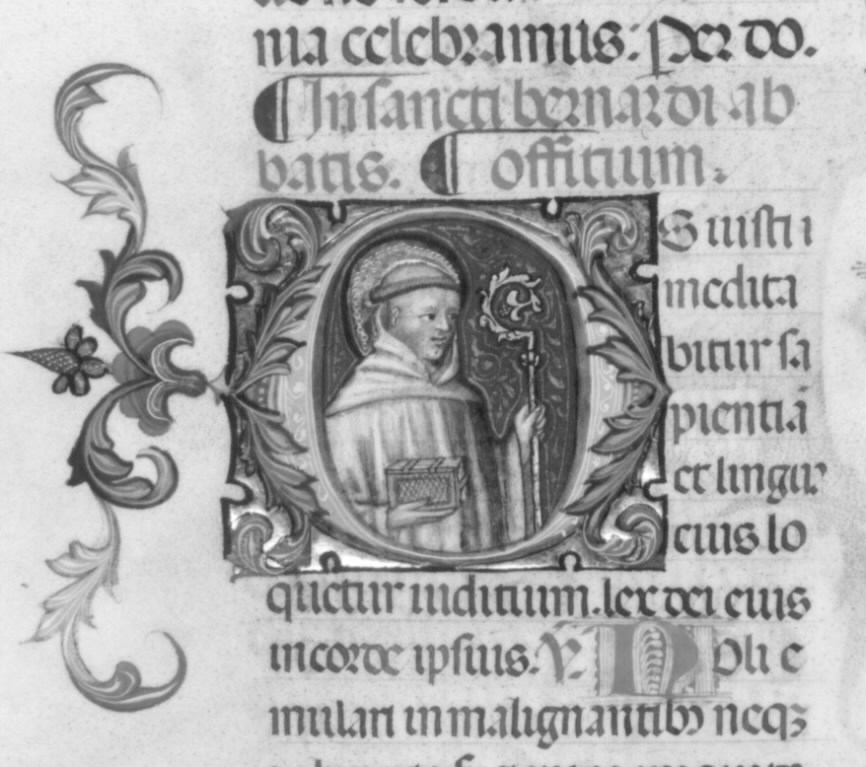 nia celebramus: Per do.
In sancti bernardi ab
batis. offitium.
OS iusti
medita
bitur sa
pientiā
et lingua
eius lo
quetur iuditium. lex dei eius
in corde ipsius. V. Noli e
mulari in malignantibꝫ neqꝫ